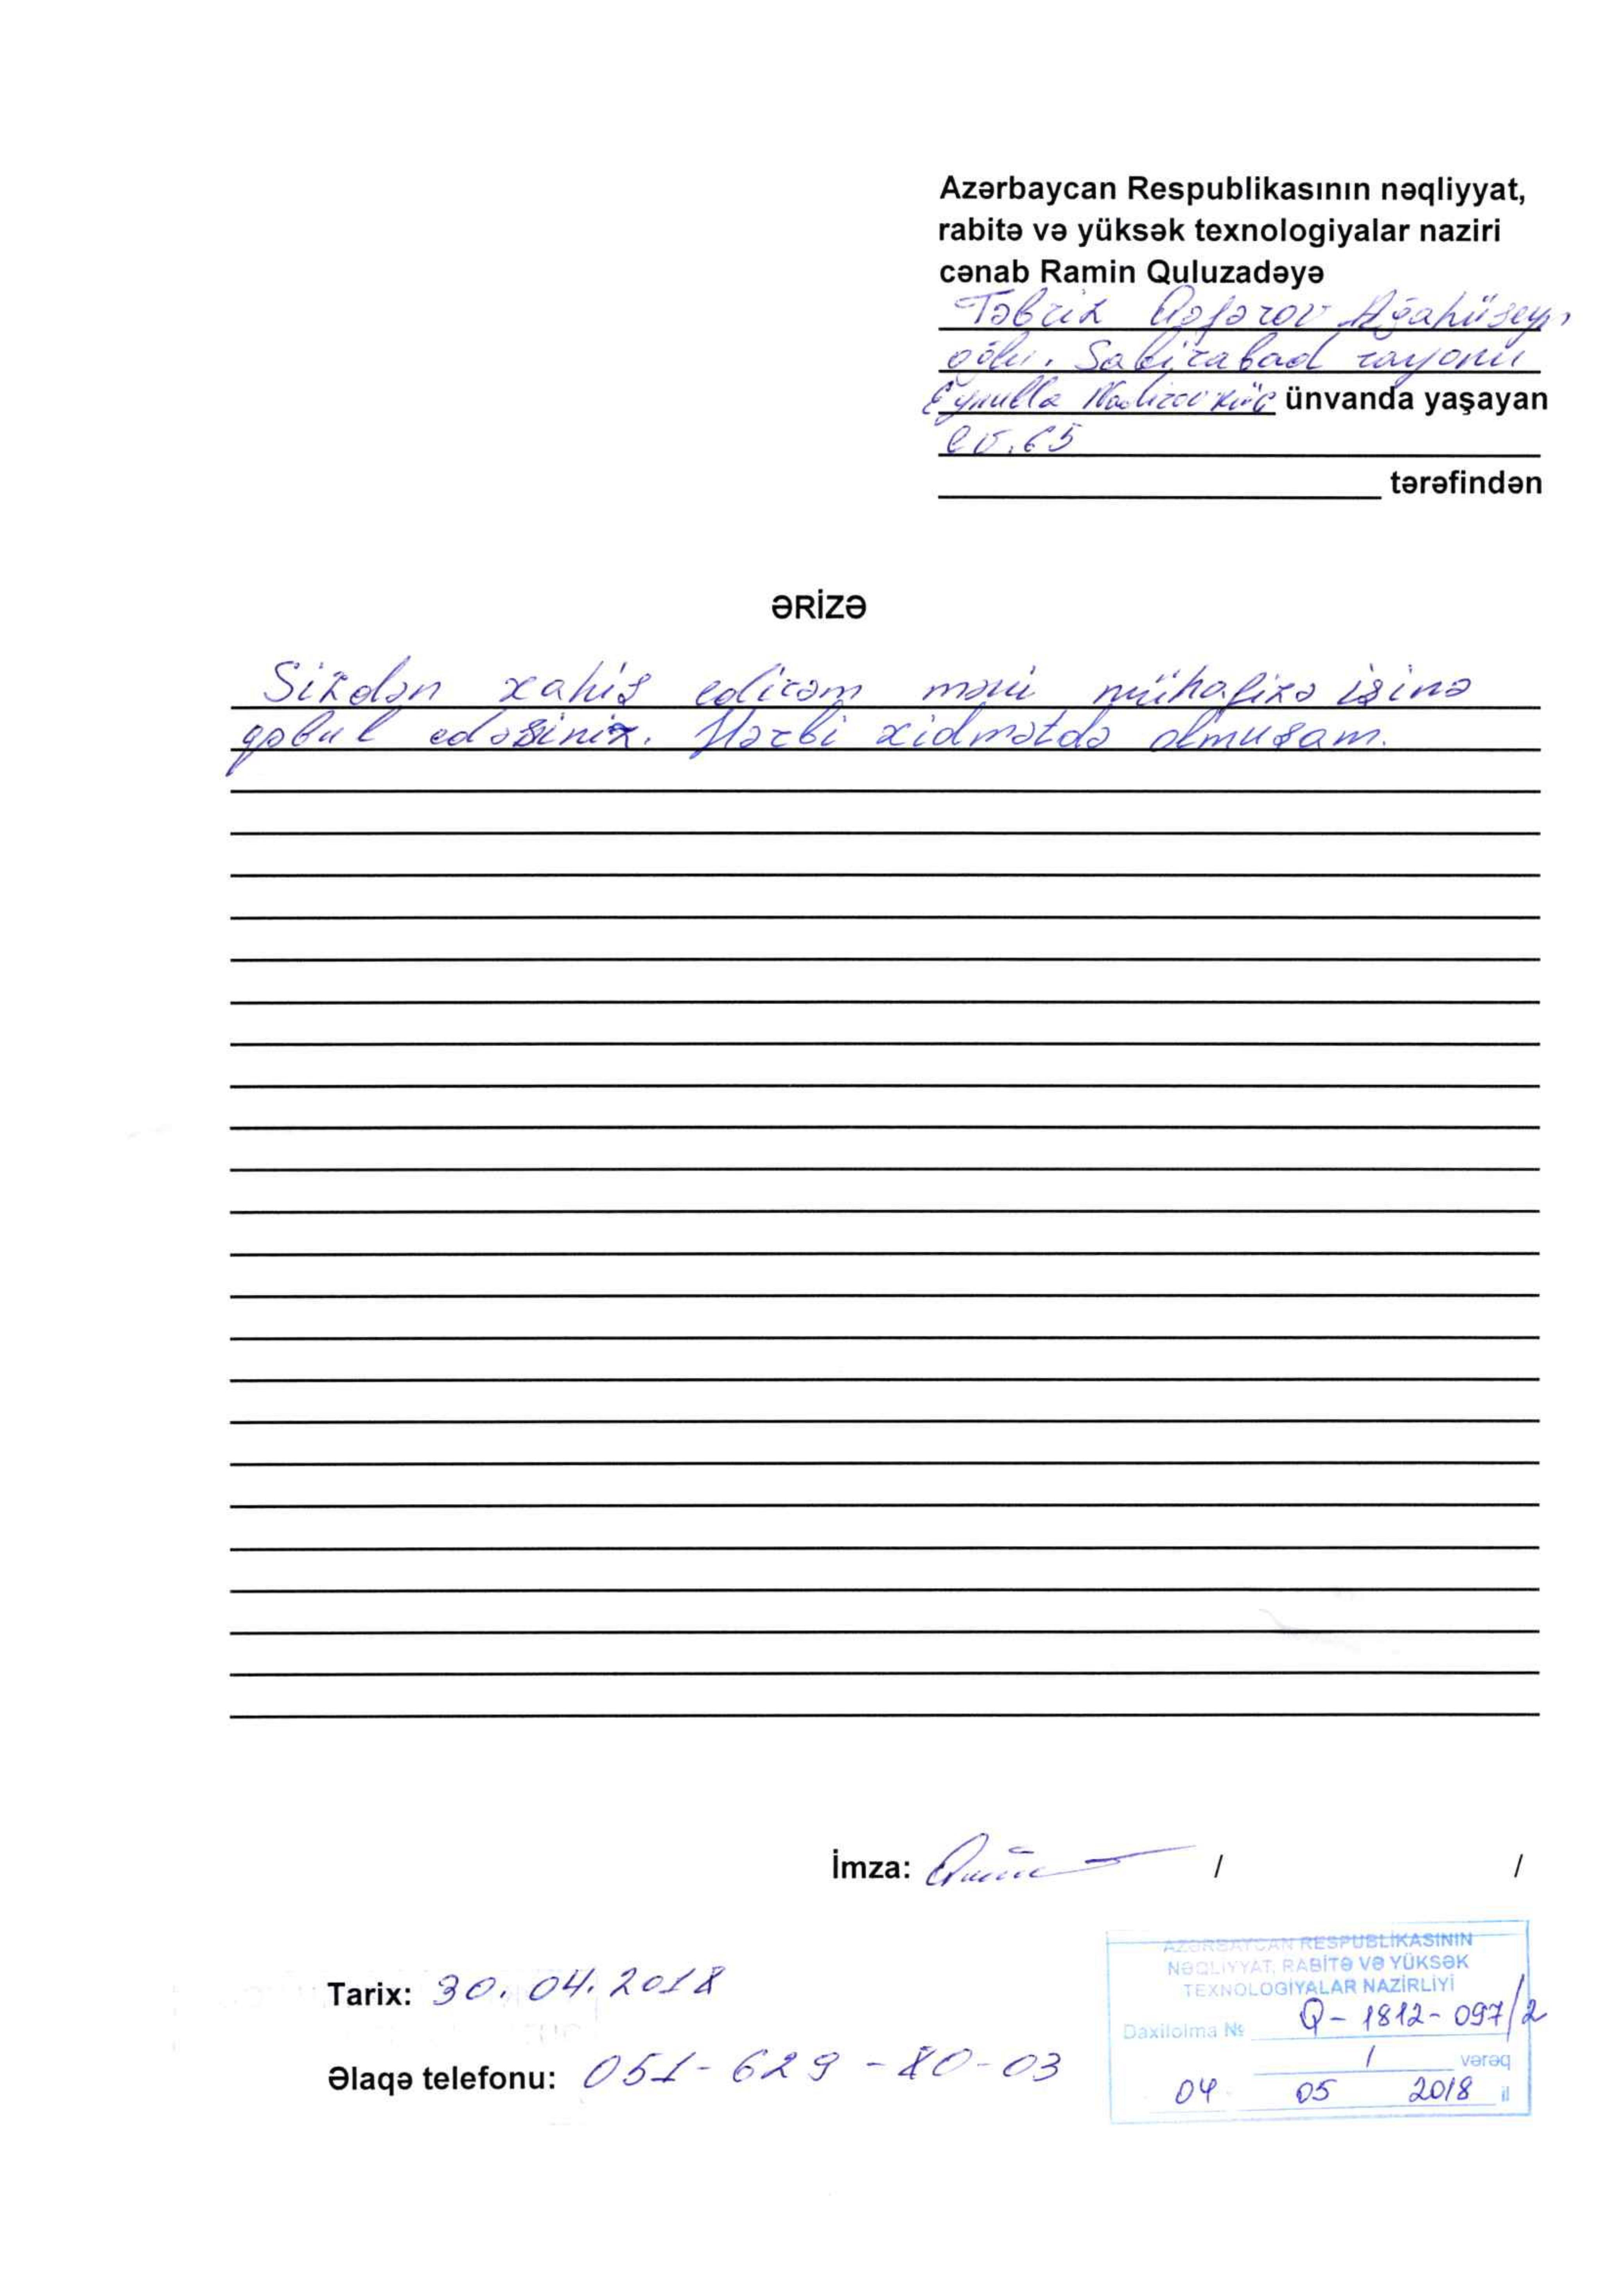 Azərbaycan Respublikasının nəqliyyat,
rabitə və yüksək texnologiyalar naziri
cənab Ramin Quluzadəyə
Təbriz Qəfərov Ağahüseyn
oğlu. Sabirabad rayonu
Eynulla Nadirov küç ünvanda yaşayan
ev.65
tərəfindən
ƏRİZƏ
Sizdən xahiş edirəm məni mühafizə işinə
qəbul edəsiniz. Hərbi xidmətdə olmuşam.
İmza: / /
AZƏRBAYCAN RESPUBLİKASININ
NƏQLİYYAT, RABİTƏ VƏ YÜKSƏK
TEXNOLOGİYALAR NAZİRLİYİ
Daxilolma № Q-1812-097/2
1 vərəq
04 05 2018 il
Tarix: 30.04.2018
Əlaqə telefonu: 051-629-80-03